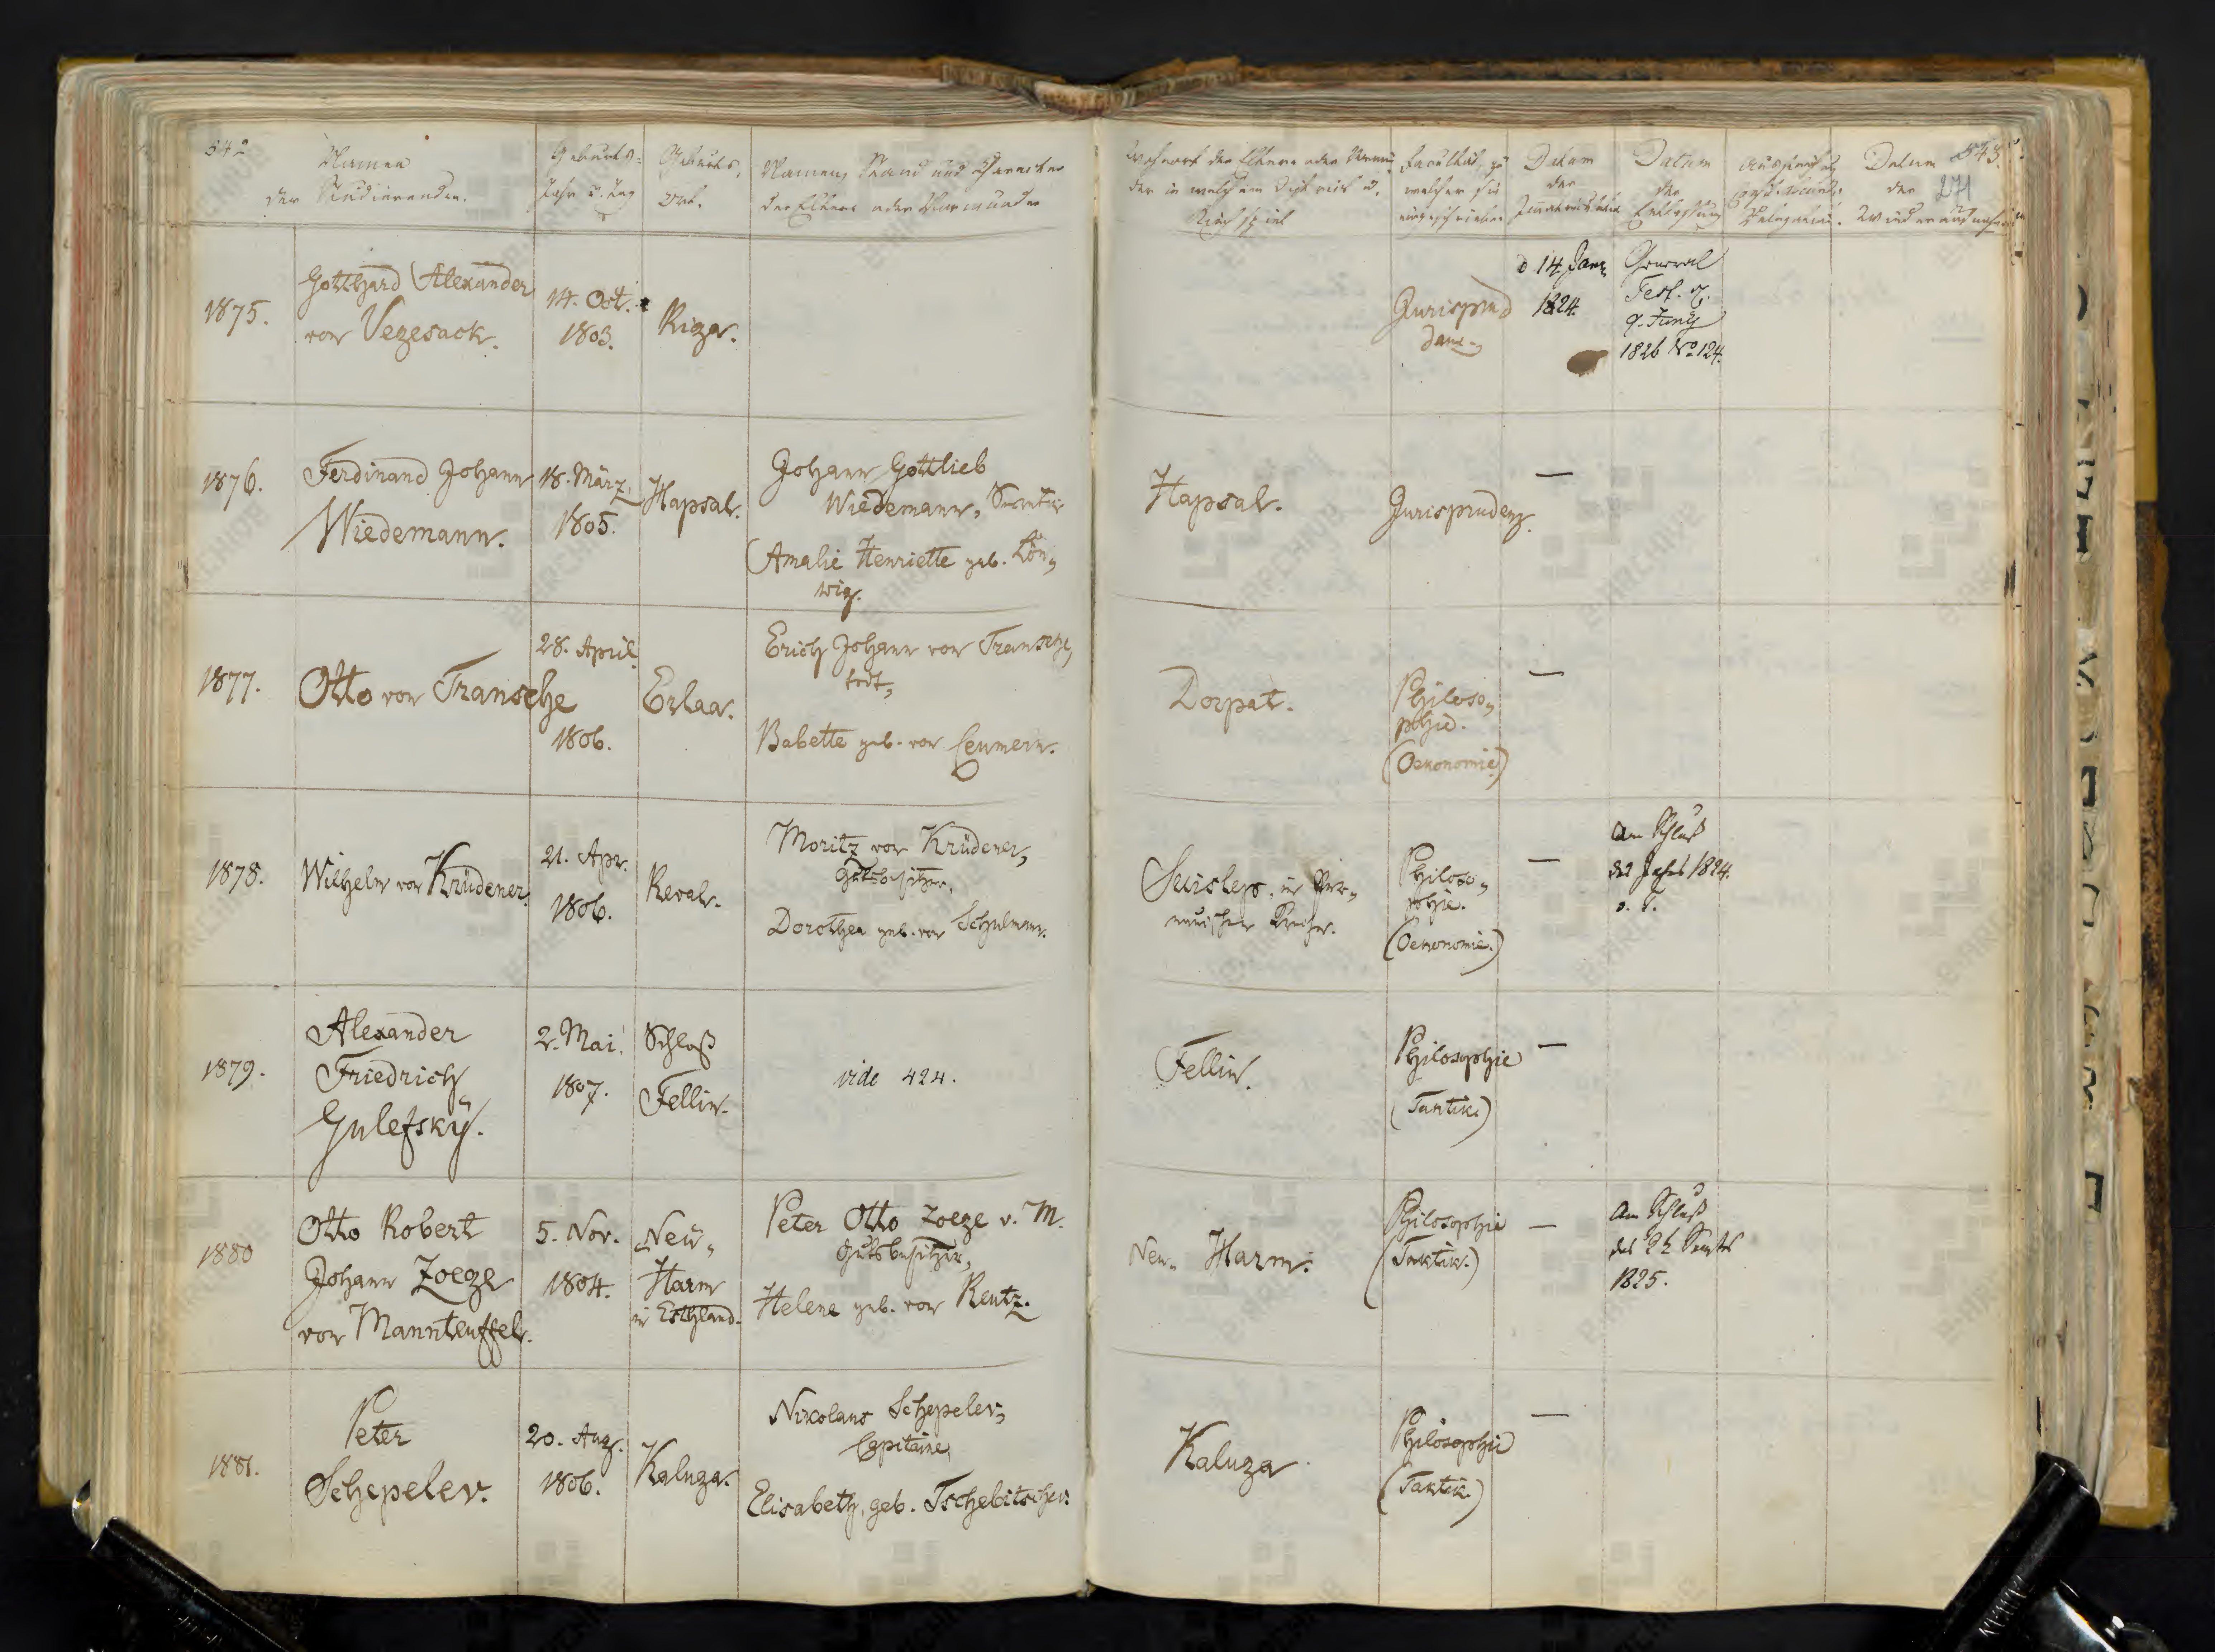 342
Namen
der Studierenden.
Geburts-
Jahr u. Tag
Geburts-
Ort.
Namen, Stand und Charakter
der Eltern oder Vormünder
Wohnort der Eltern oder Vormün-
der in welchem District u.
Kirchspiel
Facultät, zu
welcher sie
eingeschrieben
Datum
der
Immatriculation
Datum
der
Entlassung
Datum
der
Wiederaufnahme
343.
271
1875.
Gotthard Alexander
von Vegesack.
14. Oct.
1803.
Riga.
Jurispru
denz
d 14 Janr
1824.
General
Test. d.
9. Juny
1826 No 124.
1876.
Ferdinand Johann
Wiedemann.
18. März.
1805.
Hapsal.
Johann Gottlieb
Wiedemann, Secretär
Amalie Henriette geb. Lön-
wig.
Hapsal.
Jurisprudenz.
—
1877.
Otto von Transehe
28. April
1806.
Erlaa.
Erich Johann von Transehe,
todt,
Babette geb. von Ceumern.
Dorpat.
Philoso-
phie.
(Oekonomie)
—
1878.
Wilhelm von Krüdener.
21. Apr.
1806.
Reval.
Moritz von Krüdener,
Gutsbesitzer,
Dorothea geb. von Schulmann.
Suislep. im Per-
nauischen Kreise.
Philoso-
phie.
(Oekonomie.)
—
Am Schluß
des Jahrs 1824.
o. T.
1879.
Alexander
Friedrich
Gulefsky.
2. Mai.
1807.
Schloß
Fellin.
vide 424.
Fellin.
Philosophie
(Taktik.)
—
1880
Otto Robert
Johann Zoege
von Mannteuffel.
5. Nov.
1804.
Neu-
Harm
in Esthland.
Peter Otto Zoege v. M.
Gutsbesitzer,
Helene geb. von Rentz.
Neu- Harm.
Philosophie
(Taktik.)
—
Am Schluß
des 2t Semest
1825.
1881.
Peter
Schepelev.
20. Aug.
1806.
Kaluga.
Nikolaus Schepelev,
Capitaine,
Elisabeth, geb. Tschebitschev.
Kaluga
Philosophie
(Taktik.)
—